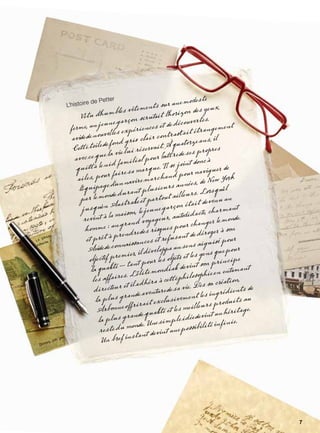 POST CARD
L'histoire de Petter
Vêtu d'humbles vêtements sur une modeste
ferme, un jeune garçon scrutait l'horizon des yeux,
avide de nouvelles expériences et de découvertes.
Cette toile de fond gris clair contrastait étrangement
avec ce que la vie lui réservait. À quatorze ans, il
quitta le nid familial pour battre de ses propres
ailes, pour faire sa marque. Il se joint donc à
l'équipage d'un navire marchand pour naviguer de
par le monde durant plusieurs années, de New York
jusqu'en Australie et partout ailleurs. Lorsqu'il
revint à la maison, le jeune garçon était devenu un
homme : un grand voyageur, autodidacte, charmant
et prêt à prendre des risques pour changer le monde.
Avide de connaissances et refusant de déroger à son
objectif premier, il développa un sens aiguisé pour
la qualité – tant pour les objets et les gens que pour
les affaires. L'élite mondiale devint son principe
directeur et il adhéra à cette philosophie en entamant
la plus grande aventure de sa vie. Dès sa création,
Arbonne offrirait exclusivement les ingrédients de
la plus grande qualité et les meilleurs produits au
reste du monde. Une simple idée devint un héritage.
Un bref instant devint une possibilité infinie.
7